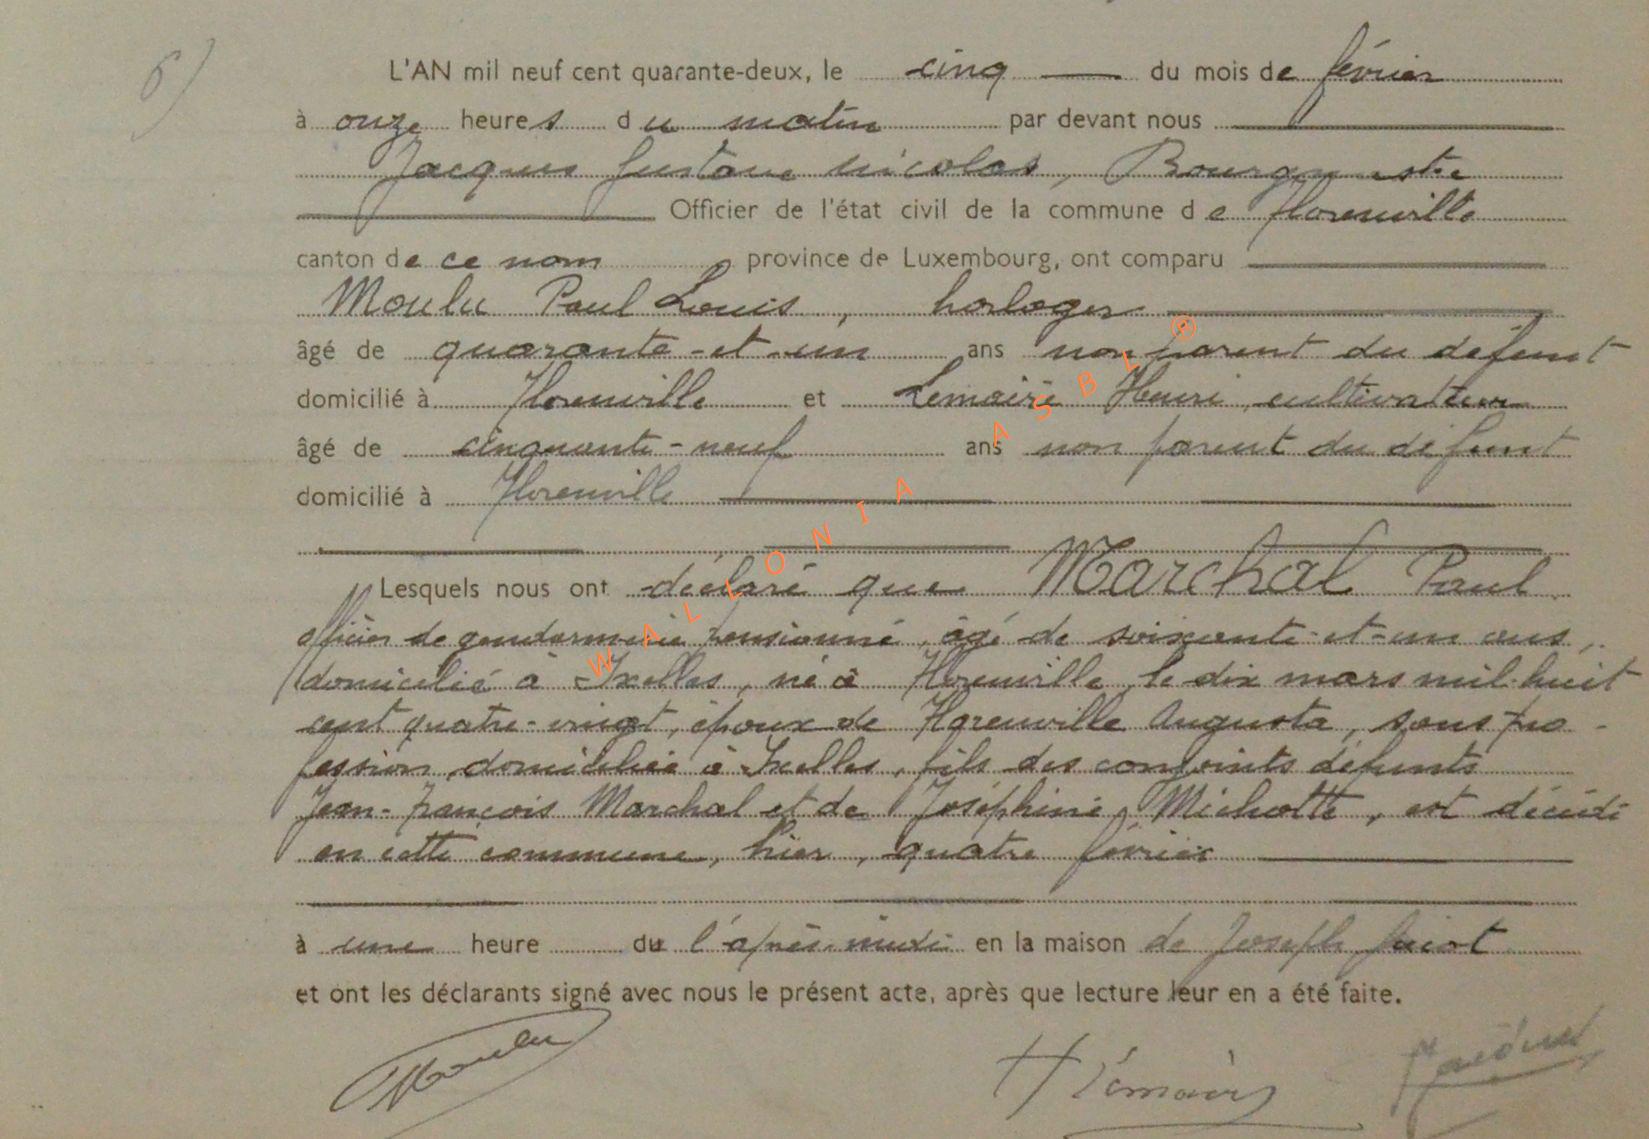 6)
L'AN mil neuf cent quarante-deux, le cinq du mois de février
à onze heures du matin par devant nous
Jacques Gustave Nicolas, Bourgmestre
Officier de l'état civil de la commune de Florenville
canton de ce nom province de Luxembourg, ont comparu
Moulu Paul Louis, horloger
âgé de quarante-et-un ans non parent du défunt
domicilié à Florenville et Lemaire Henri, cultivateur
âgé de cinquante-neuf ans non parent du défunt
domicilié à Florenville
Lesquels nous ont déclaré que Marchal Paul
officier de gendarmerie pensionné, âgé de soixante-et-un ans,
domicilié à Ixelles, né à Florenville, le dix mars mil huit
cent quatre-vingt, époux de Florenville Augusta, sans pro-
fession, domiciliée à Ixelles, fils des conjoints défunts
Jean-François Marchal et de Joséphine Michotte, est décédé
en cette commune, hier, quatre février
à une heure du l'après-midi en la maison de Joseph
et ont les déclarants signé avec nous le présent acte, après que lecture leur en a été faite.
Moulu H Lemaire
WALLONIA ASBL ®